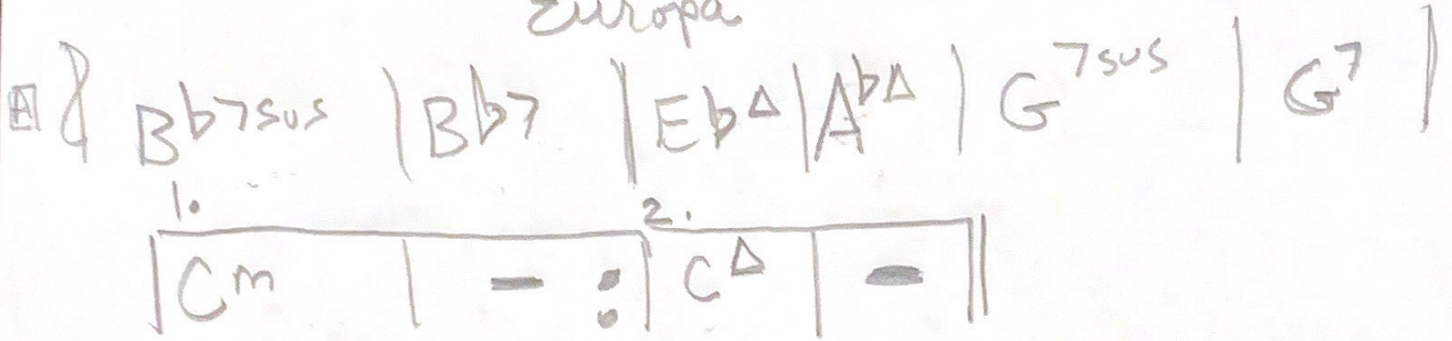 Europa
A Bb7sus | Bb7 | EbΔ | AbΔ | G7sus | G7 |
1. 2.
| Cm | - : | CΔ | - ||